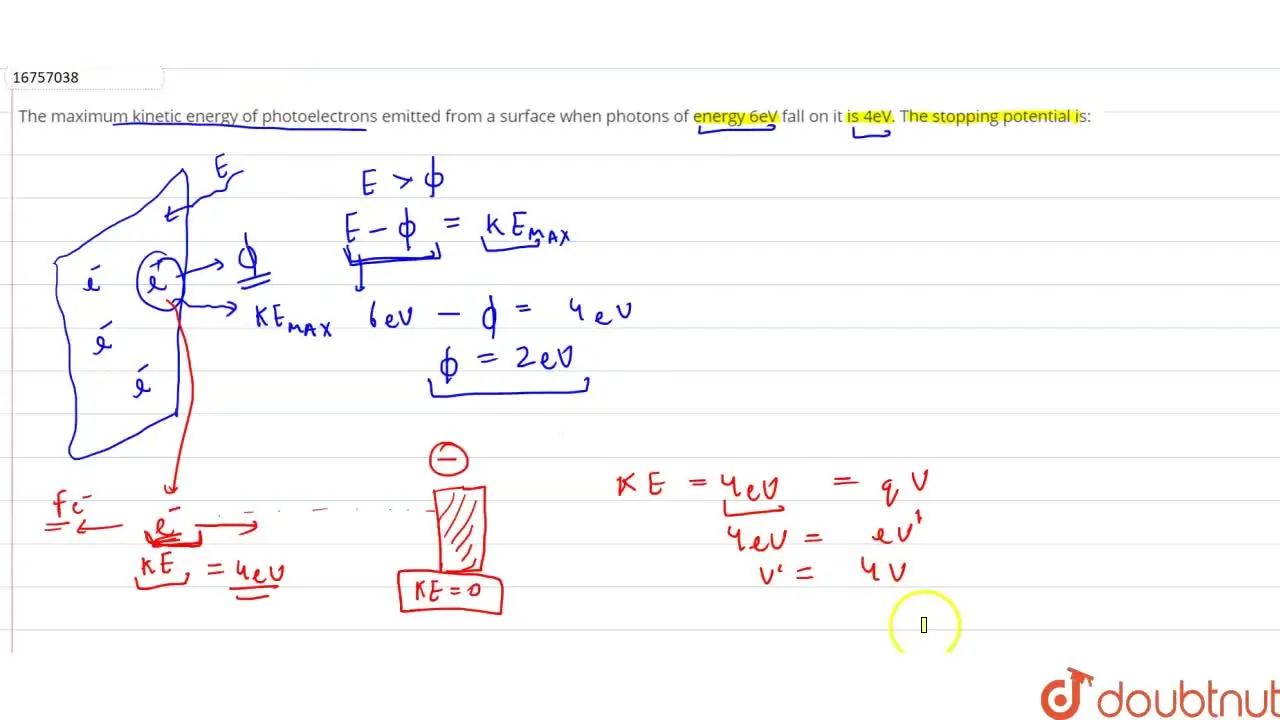 16757038
The maximum kinetic energy of photoelectrons emitted from a surface when photons of energy 6eV fall on it is 4eV. The stopping potential is:
E
E > ϕ
E – ϕ = KE MAX
e⁻ e⁻ ϕ
KE MAX
6eV – ϕ = 4eV
e⁻
ϕ = 2eV
e⁻
–
KE = 4eV = qV
Fe⁻
e⁻
4eV = eV'
KE = 4eV
KE = 0
V' = 4V
doubtnut